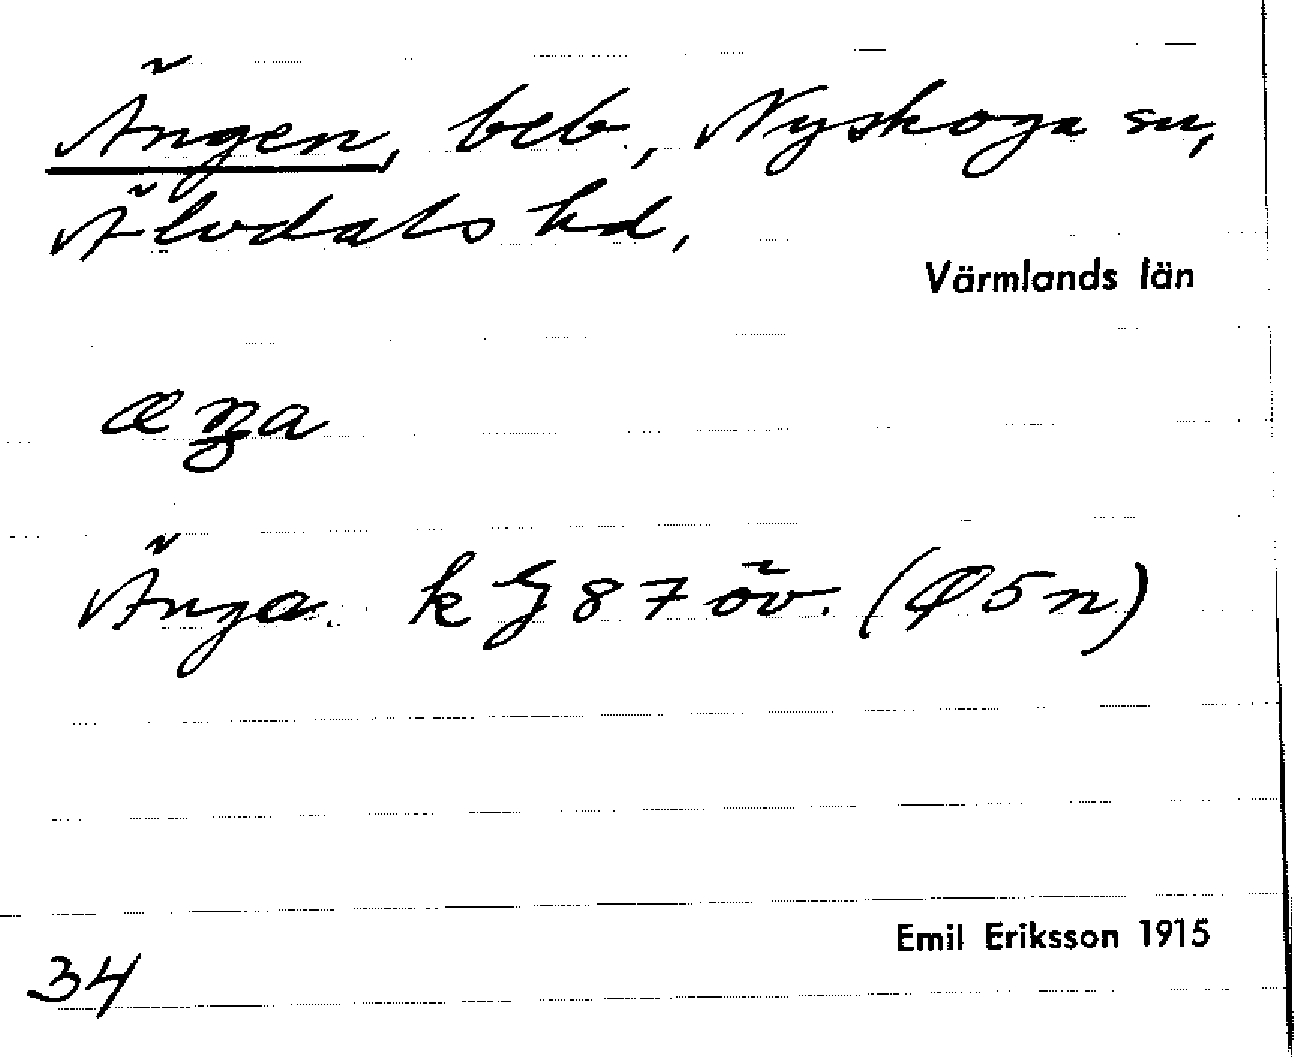 Ängen, beb., Nyskoga sn,
Älvdals hd,
Värmlands län
æŋa
Änga. k G 87 öv. (Ø5n)
Emil Eriksson 1915
34